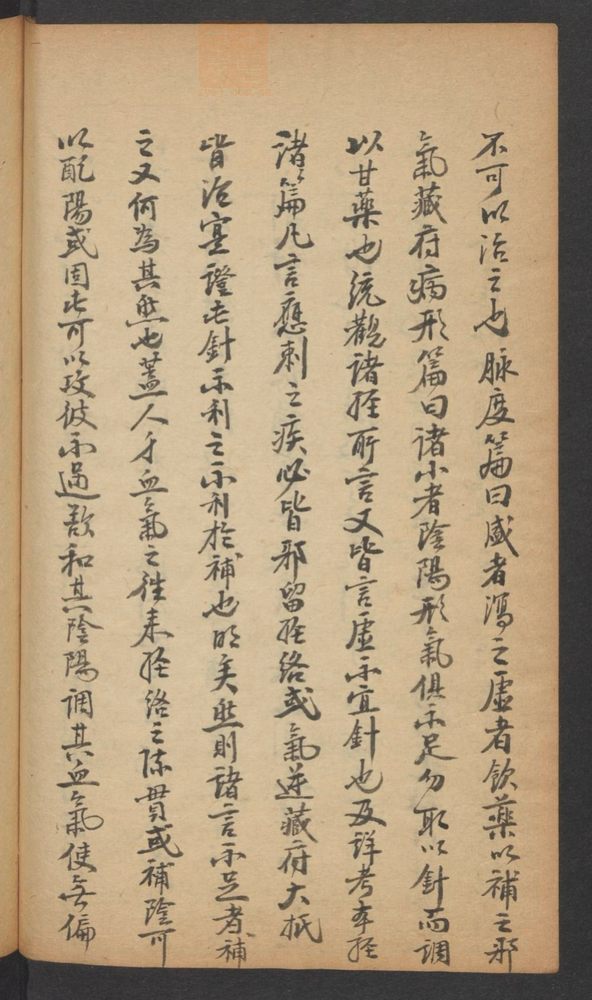 不可以治之也脉度篇曰盛者瀉之虛者飲藥以補之邪
氣藏府病形篇曰諸小者陰陽形氣俱不足勿取以針而調
以甘藥也統觀諸經所言又皆言虛不宜針也及詳考本經
諸篇凡言應刺之疾必皆邪留經絡或氣逆藏府大抵
皆治實證此針不利之不利於補也明矣然則諸言不足者補
之又何為其然也蓋人身血氣之往來經絡之流貫或補陰可
以配陽或固此可以攻彼不過欲和其陰陽調其血氣使無偏